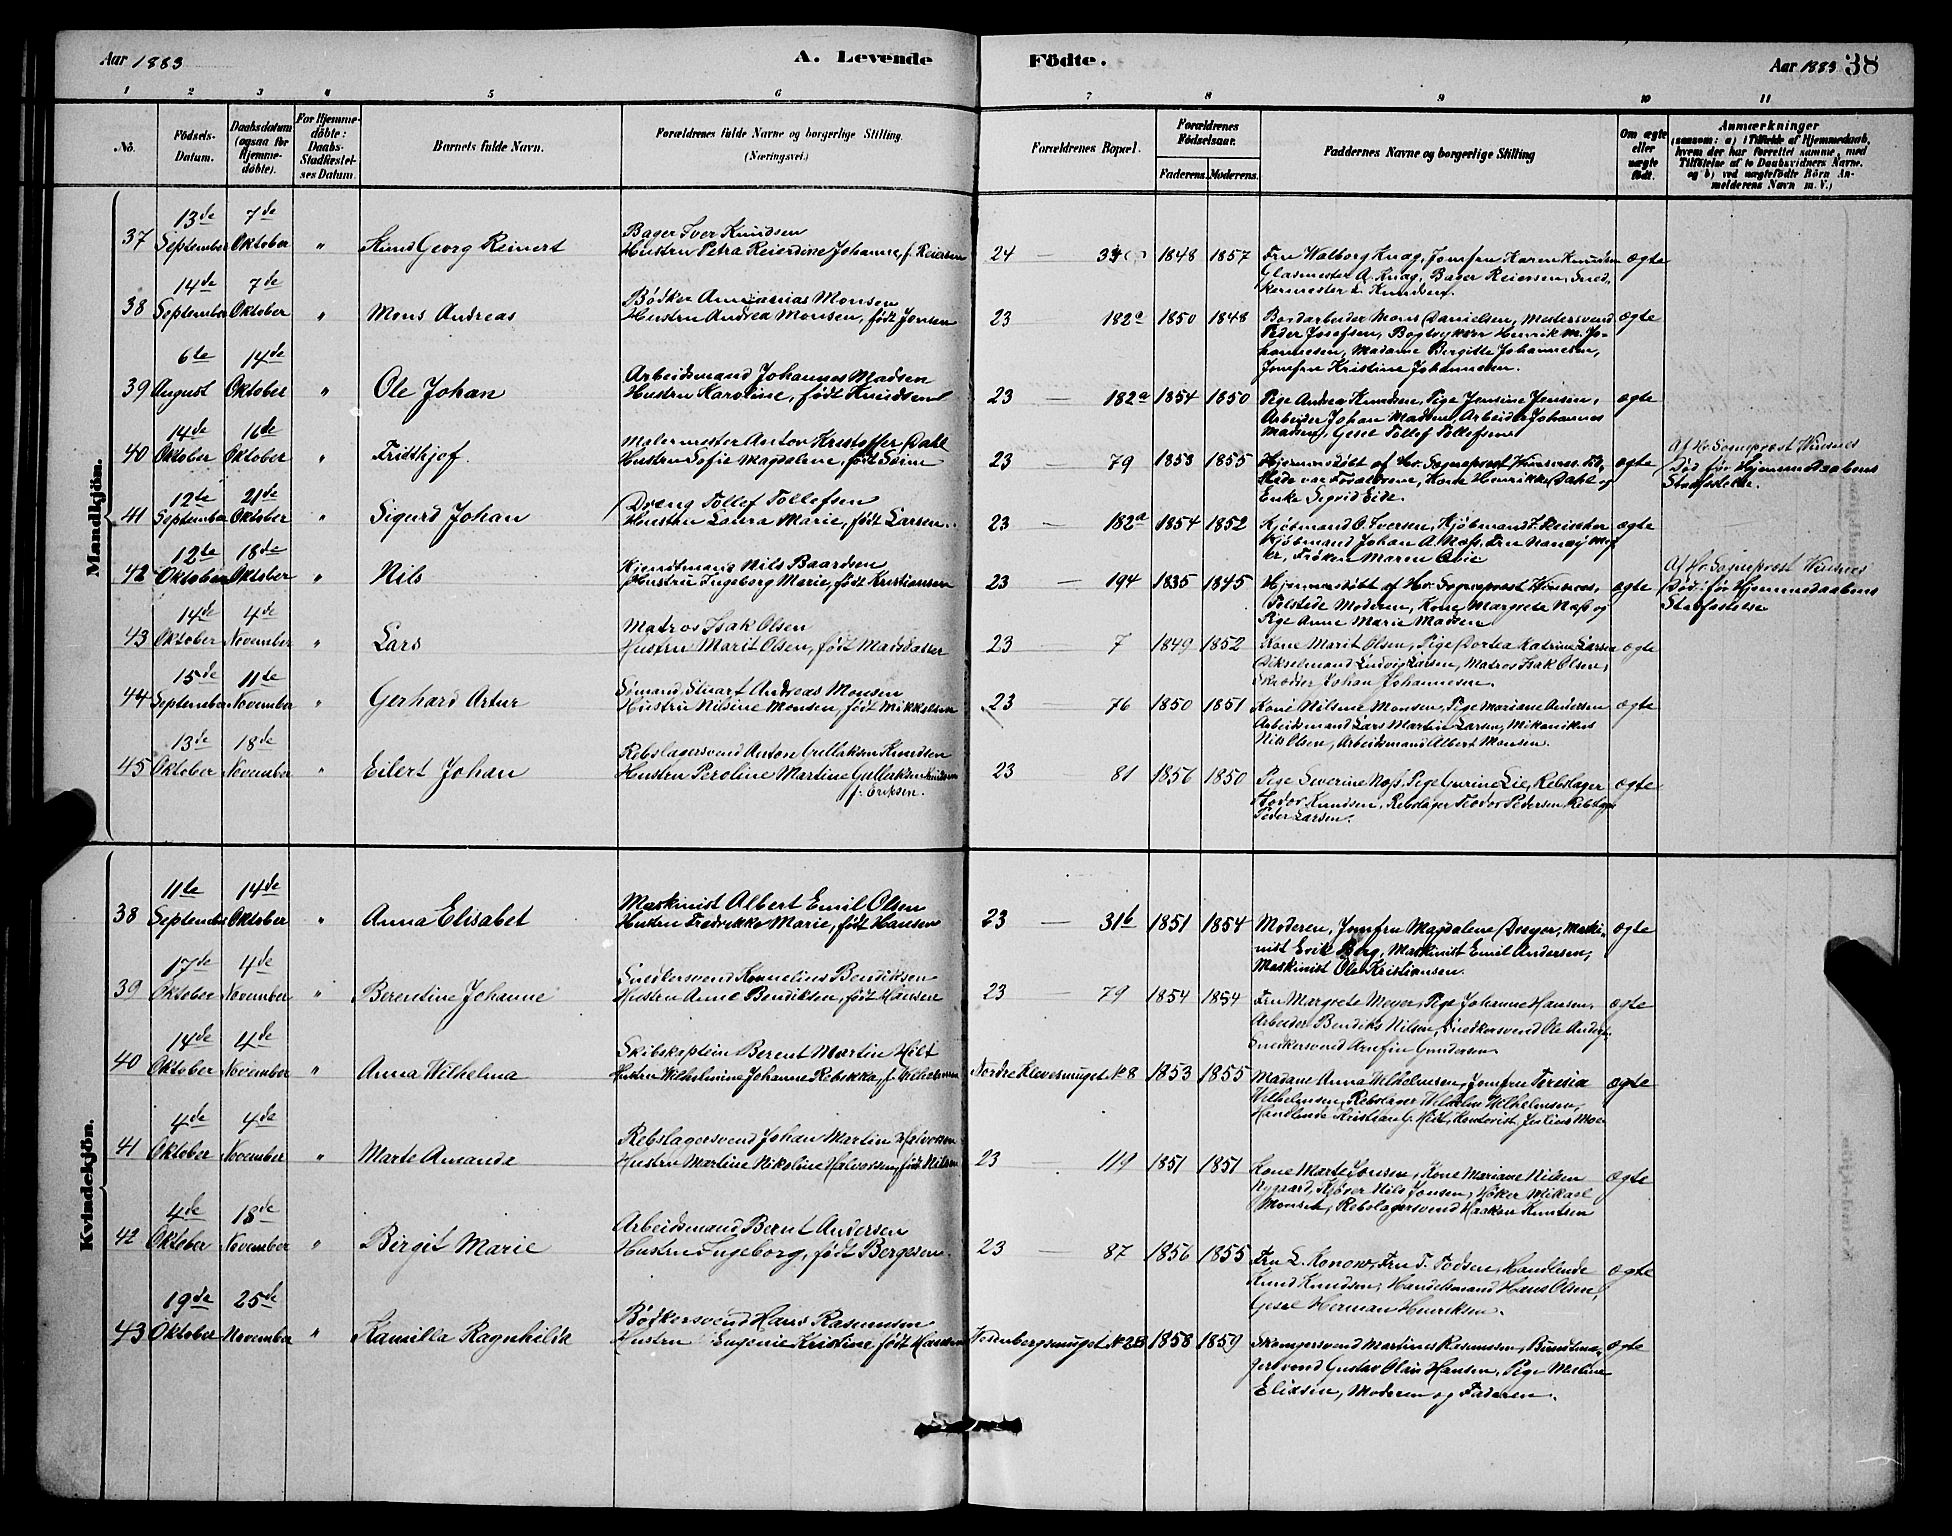 Aar 1883
A. Levende
Födte.
Aar 1883 38
1 2 3 4 5 6 7 8 9 10 11
No.
Födsels-Datum.
Daabsdatum (ogsaa for Hjemmedöbte).
For Hjemmedöbte: Daabs-Stadfæstelses Datum.
Barnets fulde Navn.
Forældrenes fulde Navne og borgerlige Stilling. (Næringsvei.)
Forældrenes Bopæl.
Forældrenes Födselsaar.
Faderens. Moderens.
Faddernes Navne og borgerlige Stilling
Om ægte eller uægte födt.
Anmærkninger
(saasom: a) i Tilfælde af Hjemmedaab, hvem der har forrettet samme, med Tilföielse af to Daabsvidners Navne, og b) ved uægtefödte Börn Anmelderens Navn m. V.)
Mandkjön.
37 13de September 7de Oktober " Knud Georg Reinert
Bager Iver Knudsen
Hustru Petra Reierdine Johanne, f. Reiersen
24 — 1848 1857
Fru Walborg Knag, Jomfru Karen Knudsen
Glasmester A. Knag, Bager Reiersen, Sned-
kermester L. Knudsen.
ægte
38 14de September 7de Oktober " Mons Andreas
Bödker Annanias Monsen
Hustru Andrea Monsen, født Jensen
23 — 182a 1850 1848
Bordarbeider Mons Danielsen, Mestersvend
Peder Josefsen, Bogtrykker Henrik M. Jo-
hannesen, Madame Bergitte Johannesen,
Jomfru Kristine Johannesen.
ægte
39 6te August 14de Oktober " Ole Johan
Arbeidsmand Johannes Madsen
Hustru Karoline, født Knudsen
23 — 182a 1854 1850
Pige Andrea Knudsen, Pige Jensine Jensen,
Arbeider Johan Madsen, Arbeider Johannes
Madsen, Gesel Tollef Tollefsen
ægte
40 14de Oktober 16de Oktober " Fridthjof.
Malermester Anton Kristoffer Dahl
Hustru Sofie Magdalene, født
23 — 79 1853 1855
Hjemmedøbt af Hr. Sogneprest
stede var Forældrene, Kone Henrikke Dahl og
Enke Sigrid Eide.
ægte
Af Hr. Sogneprest
Død før Hjemmedaabens
Stadfæstelse.
41 12te September 21de Oktober " Sigurd Johan
Dræng Tollef Tollefsen
Hustru Laura Marie, født Larsen.
23 — 182a 1854 1852
Kjøbmand O. Iversen, Kjøbmand
Kjøbmand Johan A. Moss, Fru Nancy
Frøken Maren
ægte
42 12te Oktober 18de Oktober " Nils
Nils Baardsen
Hustru Ingeborg Marie, født Kristiansen
23 — 194 1835 1845
Hjemmedøbt af Hr. Sogneprest
Tilstede Moderen, Kone Margrete Nass og
Pige Anne Marie Madsen
ægte
Af Hr. Sogneprest
Død før Hjemmedaabens
Stadfæstelse
43 14de Oktober 4de November " Lars
Matros Isak Olsen
Hustru Marit Olsen, født Madsdatter
23 — 7 1849 1852
Kone Marit Olsen, Pige Dortea Katrine Larsen
Ludvig Larsen, Matros Isak Olsen,
Skrædder Johan Johannesen.
ægte
44 15de September 11te November " Gerhard Artur
Sømand, Stuart Andreas Monsen
Hustru Nilsine Monsen, født Mikkelsen
23 — 76 1850 1851
Kone Nilsine Monsen, Pige Mariane Andersen
Arbeidsmand Lars Martin Larsen, Mekanikus
Nils Olsen, Arbeidsmand Albert Monsen.
ægte
45 13de Oktober 18de November " Eilert Johan
Rebslagersvend Anton Gullaksen Knudsen
Hustru Peroline Martine Gullaksen Knudsen
f. Eriksen.
23 81 1856 1850
Pige Severine Moss, Pige Gurine Lie, Rebslager
Teodor Knudsen, Rebslager Teodor Pedersen, Rebslager
Peder Larsen.
ægte
Kvindekjön.
38 11te September 14de Oktober " Anna Elisabet
Maskinist Albert Emil Olsen
Hustru Fredrikke Marie, født Hansen
23 — 31b 1851 1854
Moderen, Jomfru Magdalene Dreyer, Maski-
nist Erik Berg, Maskinist Emil Andersen,
Maskinist Ole Kristiansen.
ægte
39 17de Oktober 4de November " Berentine Johanne
Snedkersvend Kornelius Bendiksen
Hustru Anne Bendiksen, født Hansen
23 — 79 1854 1854
Fru Margrete Meyer, Pige Johanne Hansen,
Arbeider Bendiks Nilsen, Snedkersvend Ole Anders.
Snedkersvend Arnfin Gundersen
ægte
40 14de Oktober 4de November " Anna Wilhelma
Skibskaptein Berent Martin Hilt
Hustru Wilhelmine Johanne Rebekka, f. Wilhelmsen
Nordre Klevesmuget No 8 1853 1855
Madame Anna Wilhelmsen, Jomfru Teresia
Wilhelmsen, Rebslager Wilhelm Wilhelmsen,
Handlende Kristian G. Hilt, Kontorist Julius Moe
ægte
41 4de Oktober 4de November " Marte Amanda
Rebslagersvend Johan Martin Halvorsen
Hustru Martine Nikoline Halvorsen, født Nilsen
23 — 119 1851 1851
Kone Marte Jonsen, Kone Mariane Nilsen
Nygaard, Nils Jonsen, Høker Mikael
Monsen, Rebslagersvend Haakon Knutsen
ægte
42 4de Oktober 18de November " Birgit Marie
Arbeidsmand Bernt Andersen
Hustru Ingeborg, født Bergesen.
23 — 87 1856 1855
Fru L. Konow, Fru T. Todsen, Handlende
Knud Knudsen, Handelsmand Hans Olsen,
Gesel Herman Henriksen.
ægte
43 19de Oktober 25de November " Kamilla Ragnhilda
Bödkersvend Hans Rasmussen
Hustru Eugenie Kristine født Hansen
No 2B 1858 1859
Martinus Rasmussen, Buntma-
gersvend Gustav Olai Hansen, Pige
Moderen og Faderen.
ægte